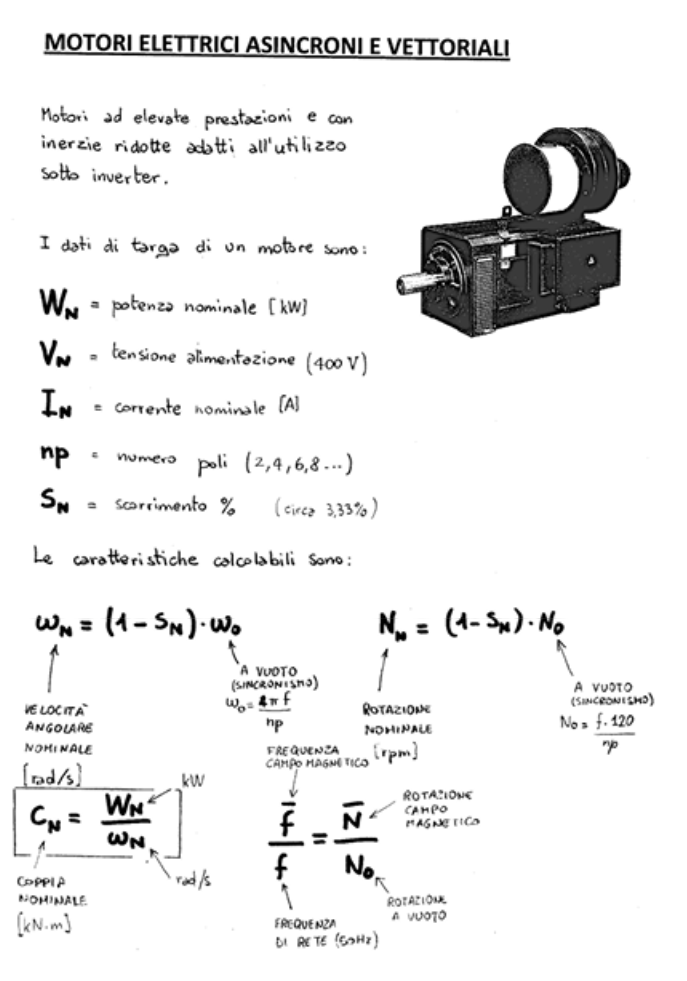 MOTORI ELETTRICI ASINCRONI E VETTORIALI
Motori ad elevate prestazioni e con
inerzie ridotte adatti all'utilizzo
sotto inverter.
I dati di targa di un motore sono:
W_N = potenza nominale [kW]
V_N = tensione alimentazione (400 V)
I_N = corrente nominale [A]
np = numero poli (2,4,6,8...)
S_N = scorrimento % (circa 3,33%)
Le caratteristiche calcolabili sono:
ω_N = (1 - S_N) · ω_0
N_N = (1 - S_N) · N_0
VELOCITÀ
ANGOLARE
NOMINALE
[rad/s]
A VUOTO
(SINCRONISMO)
ω_0 = 4π f / np
ROTAZIONE
NOMINALE
[rpm]
A VUOTO
(SINCRONISMO)
N_0 = f·120 / np
C_N = W_N / ω_N
kW
rad/s
COPPIA
NOMINALE
[kN·m]
FREQUENZA
CAMPO MAGNETICO
f̄ / f = N̄ / N_0
ROTAZIONE
CAMPO
MAGNETICO
FREQUENZA
DI RETE (50Hz)
ROTAZIONE
A VUOTO